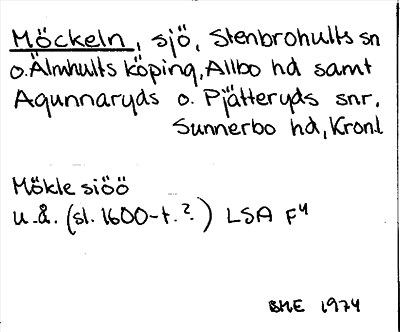 Möckeln, sjö, Stenbrohults sn
o. Älmhults köping, Allbo hd samt
Agunnaryds o. Pjätteryds snr,
Sunnerbo hd, Kronl
Mökle siöö
u.å. (sl. 1600-t.?) LSA F4
BHE 1974